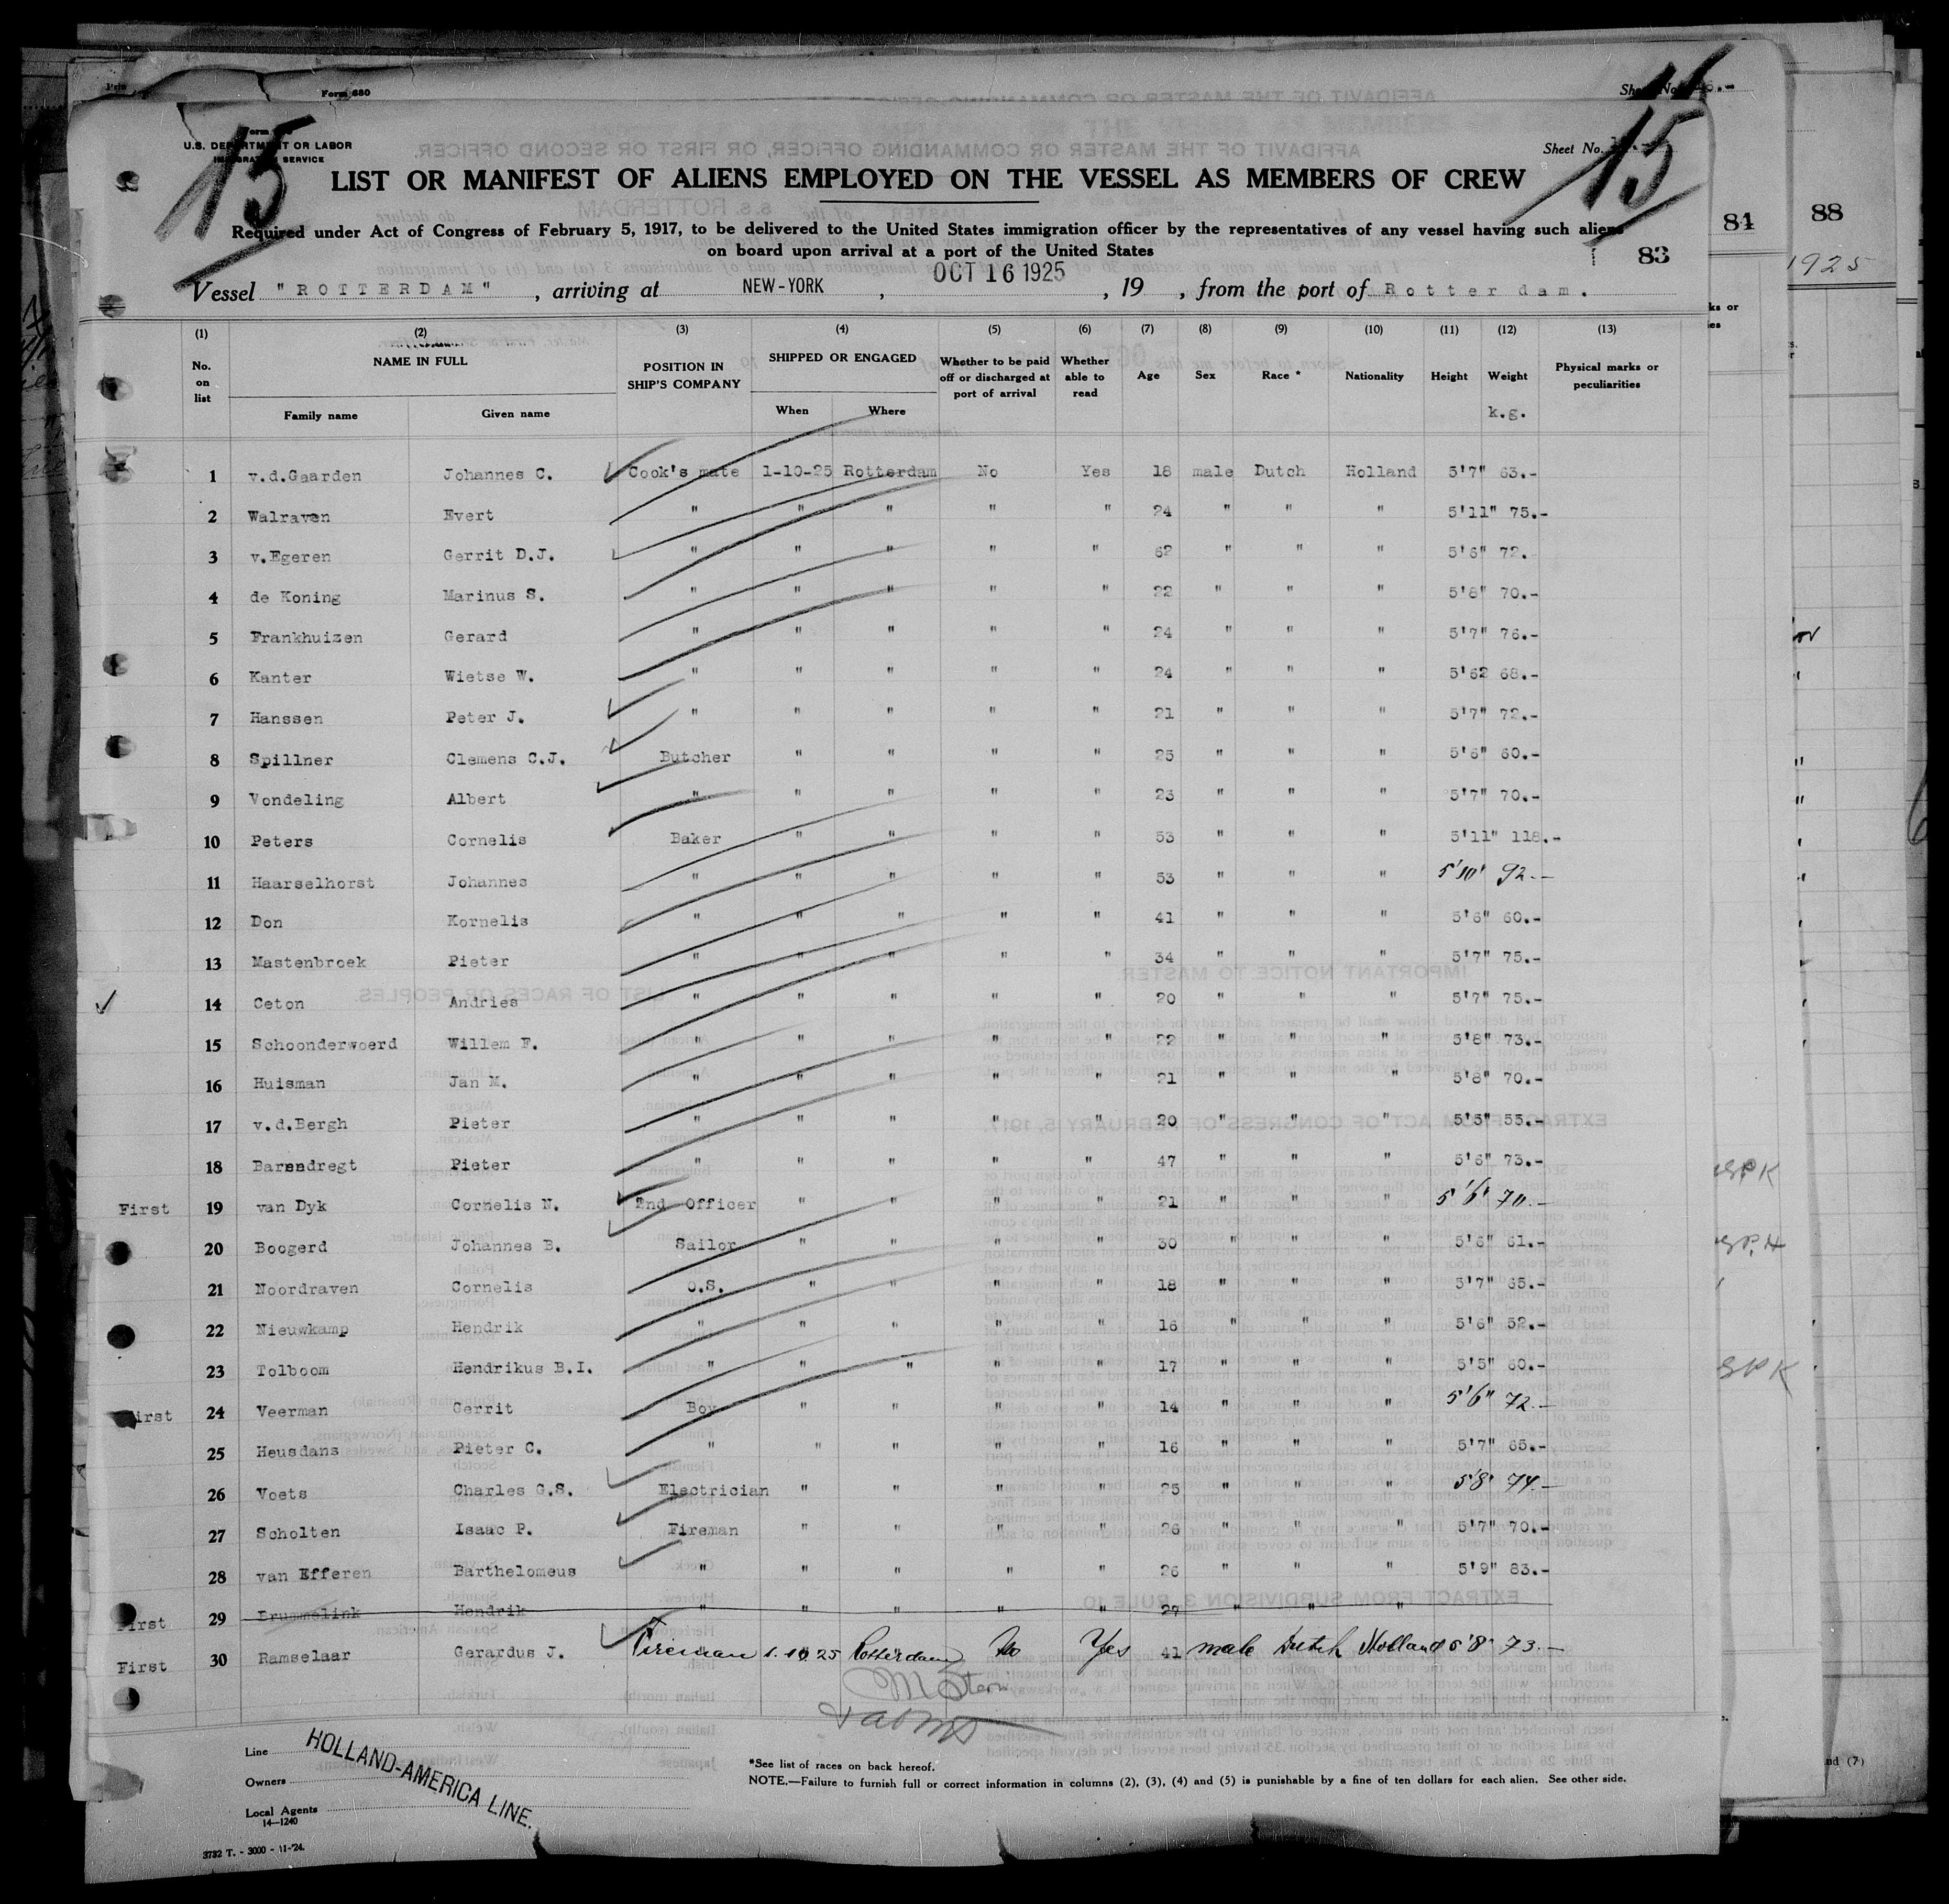 Form 680
15
15
U.S. DEPARTMENT OR LABOR
IMMIGRATION SERVICE
Sheet No.
LIST OR MANIFEST OF ALIENS EMPLOYED ON THE VESSEL AS MEMBERS OF CREW
Required under Act of Congress of February 5, 1917, to be delivered to the United States immigration officer by the representatives of any vessel having such aliens
on board upon arrival at a port of the United States
83
84
88
1925
Vessel "ROTTERDAM", arriving at NEW-YORK, OCT 16 1925, 19 , from the port of Rotterdam.
(1) (2) (3) (4) (5) (6) (7) (8) (9) (10) (11) (12) (13)
No. on list NAME IN FULL Family name Given name POSITION IN SHIP'S COMPANY SHIPPED OR ENGAGED When Where Whether to be paid off or discharged at port of arrival Whether able to read Age Sex Race * Nationality Height Weight k.g. Physical marks or peculiarities
1 v.d.Gaarden Johannes C. Cook's mate 1-10-25 Rotterdam No Yes 18 male Dutch Holland 5'7" 63.-
2 Walraven Evert " " " " " 24 " " " 5'11" 75.-
3 v.Egeren Gerrit D.J. " " " " " 62 " " " 5'6" 72.
4 de Koning Marinus S. " " " " " 22 " " " 5'8" 70.-
5 Frankhuizen Gerard " " " " " 24 " " " 5'7" 76.-
6 Kanter Wietse W. " " " " " 24 " " " 5'62 68.-
7 Hanssen Peter J. " " " " " 21 " " " 5'7" 72.-
8 Spillner Clemens C.J. Butcher " " " " 25 " " " 5'6" 60.-
9 Vondeling Albert " " " " " 23 " " " 5'7" 70.-
10 Peters Cornelis Baker " " " " 53 " " " 5'11" 118.-
11 Haarselhorst Johannes " " " " " 53 " " " 5'10" 92.-
12 Don Kornelis " " " " " 41 " " " 5'6" 60.-
13 Mastenbroek Pieter " " " " " 34 " " " 5'7" 75.-
14 Ceton Andries " " " " " 20 " " " 5'7" 75.-
15 Schoonderwoerd Willem F. " " " " " 22 " " " 5'8" 73.-
16 Huisman Jan M. " " " " " 21 " " " 5'8" 70.-
17 v.d.Bergh Pieter " " " " " 20 " " " 5'5" 55.-
18 Barendregt Pieter " " " " " 47 " " " 5'6" 73.-
First 19 van Dyk Cornelis N. 2nd Officer " " " " 21 " " " 5'6" 70.-
20 Boogerd Johannes B. Sailor " " " " 30 " " " 5'6" 61.-
21 Noordraven Cornelis O.S. " " " " 18 " " " 5'7" 65.-
22 Nieuwkamp Hendrik " " " " " 16 " " " 5'6" 52.-
23 Tolboom Hendrikus B.I. " " " " " 17 " " " 5'5" 60.-
First 24 Veerman Gerrit Boy " " " " 14 " " " 5'6" 72.-
25 Heusdans Pieter C. " " " " " 16 " " " 5'7" 65.-
26 Voets Charles G.S. Electrician " " " " 25 " " " 5'8" 74.-
27 Scholten Isaac P. Fireman " " " " 26 " " " 5'7" 70.-
28 van Efferen Barthelomeus " " " " " 26 " " " 5'9" 83.-
First 29 Brummelink Hendrik " " " " " 27 " " "
First 30 Ramselaar Gerardus J. Fireman 1.10.25 Rotterdam No Yes 41 male Dutch Holland 5'8" 73.-
Line
HOLLAND-AMERICA LINE.
Owners
Local Agents
14—1240
*See list of races on back hereof.
NOTE.—Failure to furnish full or correct information in columns (2), (3), (4) and (5) is punishable by a fine of ten dollars for each alien. See other side.
3732 T. - 3000 - 11-'24.